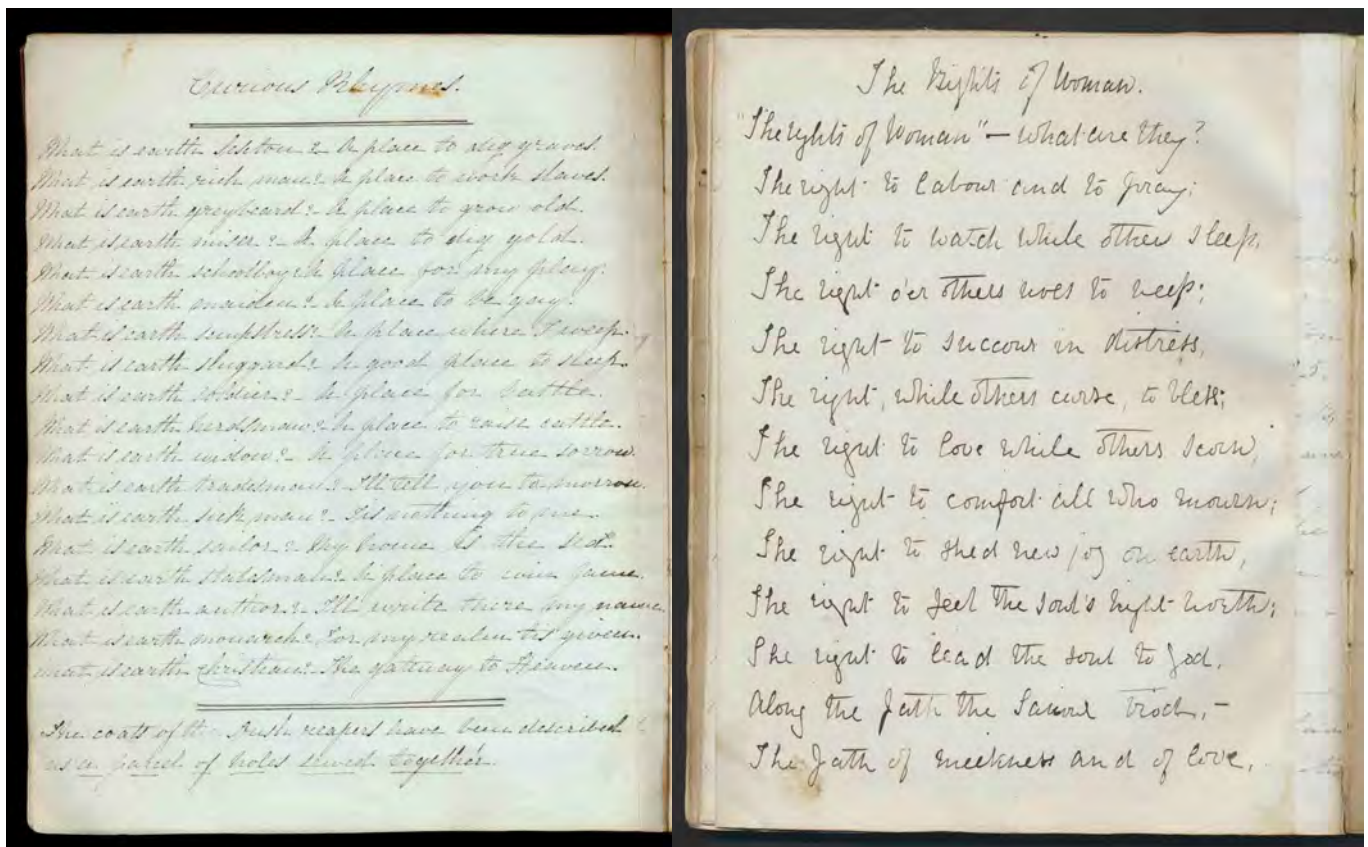 Curious Rhymes.
What is earth sexton? A place to dig graves
What is earth rich man? A place to work slaves.
What is earth greybeard? A place to grow old.
What is earth miser? A place to dig gold.
What is earth schoolboy? A place for my play.
What is earth maiden? A place to be gay.
What is earth sempstress? A place where I weep.
What is earth sluggard? A good place to sleep.
What is earth soldier? A place for battle.
What is earth herdsman? A place to raise cattle.
What is earth widow? A place for true sorrow.
What is earth tradesman? I'll tell you to morrow.
What is earth sick man? Tis nothing to me.
What is earth sailor? My home is the sea.
What is earth statesman? A place to win fame.
What is earth author? I'll write there my name.
What is earth monarch? For my realm tis given.
What is earth Christian? The gateway to Heaven.
The coats of the Irish reapers have been described
as a parcel of holes sewed together.
The Rights of Woman.
"The rights of Woman" — what are they?
The right to labour and to pray;
The right to watch while others sleep,
The right o'er others woes to weep;
The right to succour in distress,
The right, while others curse, to bless;
The right to love while others scorn,
The right to comfort all who mourn;
The right to shed new joy on earth,
The right to feel the soul's high worth;
The right to lead the soul to God,
Along the path the Saviour trod, –
The path of meekness and of love,